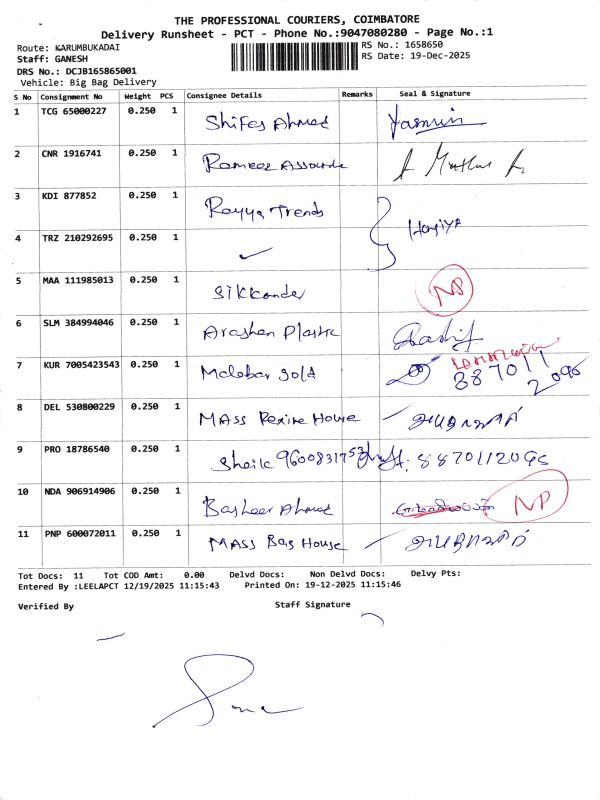 THE PROFESSIONAL COURIERS, COIMBATORE
Delivery Runsheet - PCT - Phone No.:9047080280 - Page No.:1
Route: KARUMBUKADAI
RS No.: 1658650
Staff: GANESH
RS Date: 19-Dec-2025
DRS No.: DCJB165865001
Vehicle: Big Bag Delivery
S No Consignment No Weight PCS Consignee Details Remarks Seal & Signature
1 TCG 65000227 0.250 1 Ahmed
2 CNR 1916741 0.250 1
3 KDI 877852 0.250 1 Rayya Trends
4 TRZ 210292695 0.250 1 ✓
5 MAA 111985013 0.250 1 Sikkander NP
6 SLM 384994046 0.250 1 Plastic
7 KUR 7005423543 0.250 1 Malabar Gold 887011
2095
8 DEL 530800229 0.250 1 MASS Rexine House
9 PRO 18786540 0.250 1 Sheik 9600831753 8870112095
10 NDA 906914906 0.250 1 Basheer Ahmed NP
11 PNP 600072011 0.250 1 MASS Bag House
Tot Docs: 11 Tot COD Amt: 0.00 Delvd Docs: Non Delvd Docs: Delvy Pts:
Entered By :LEELAPCT 12/19/2025 11:15:43 Printed On: 19-12-2025 11:15:46
Verified By Staff Signature